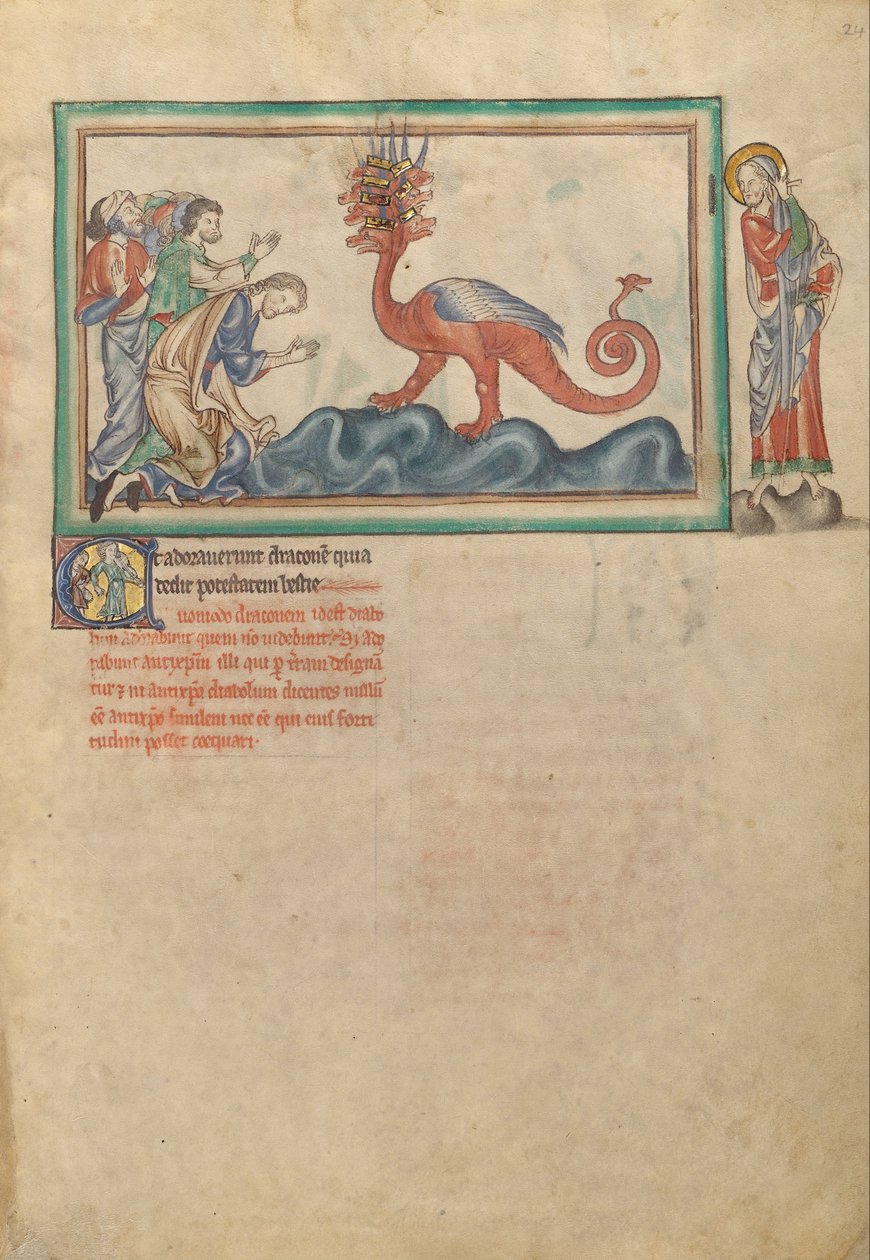 24
Et adorauerunt draconē quia
dedit potestatem bestie
Quomodo draconem id est diabo
lum adorabunt quem nō uidebunt? Si ado
rabunt antixp̄m illi qui ꝑ t̄ram designā
tur ⁊ in antixp̄o diabolum dicentes nullū
eē antixp̄o similem nec eē qui eius forti
tudini posset coequari.